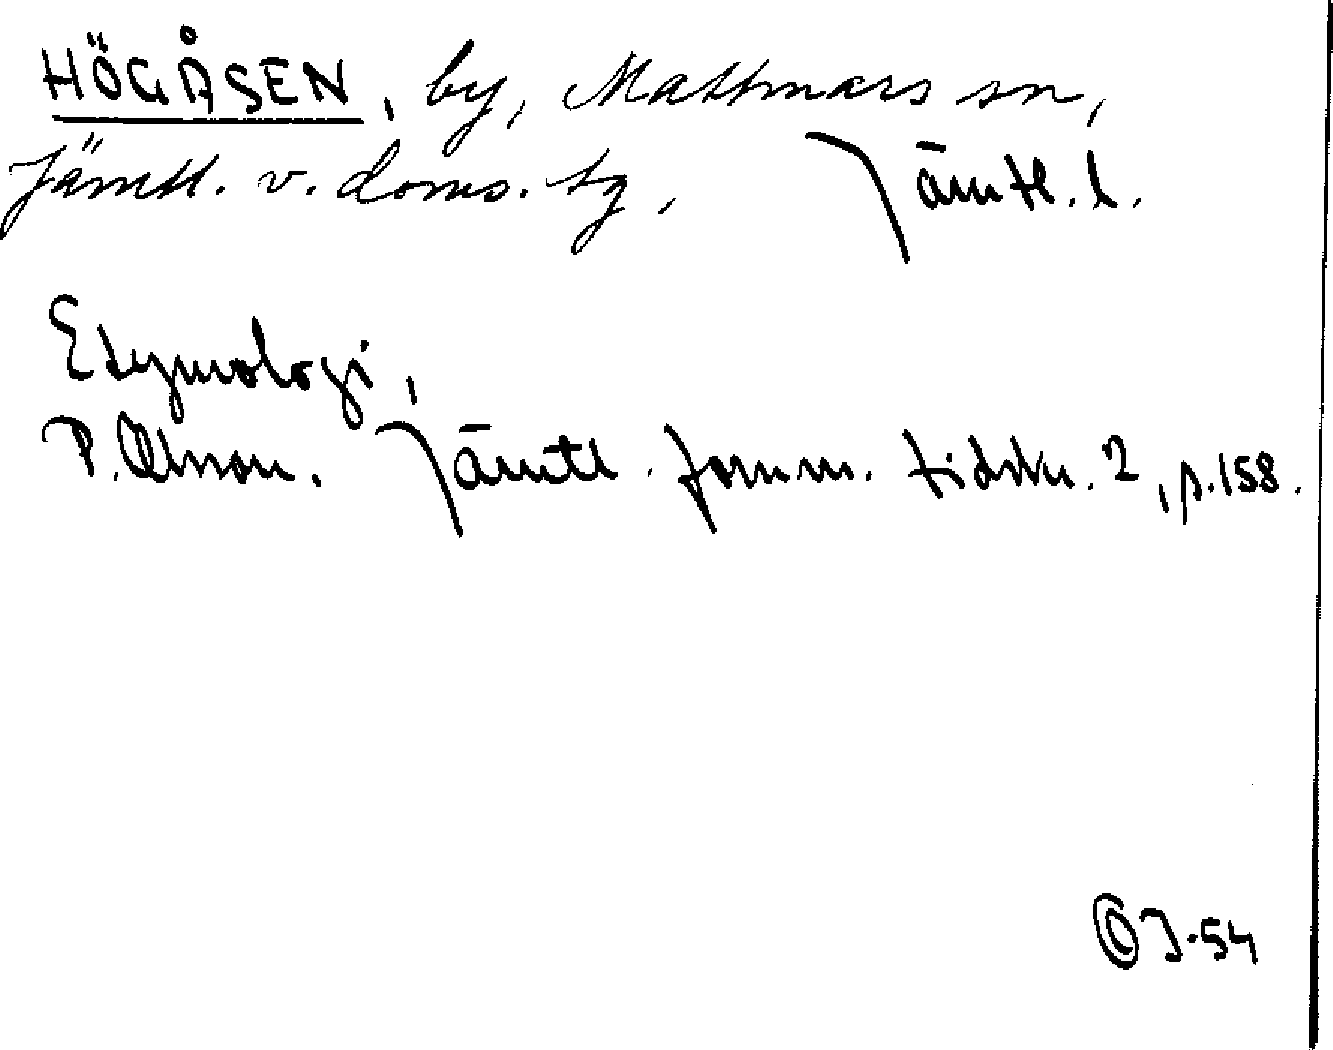 HÖGÅSEN, by, Mattmars sn,
Jämtl. v. doms. tg, Jämtl. l.
Etymologi,
P. Olsson. Jämtl. fornm. tidskr. 2, p. 158.
J-54